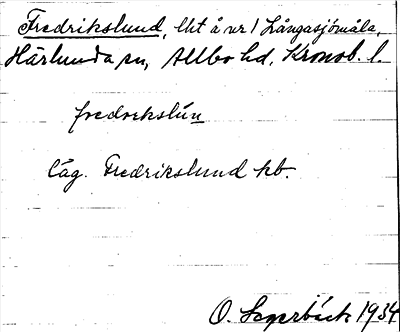 Fredrikslund, lht å nr 1 Långasjömåla,
Härlunda sn, Allbo hd, Kronob. l.
fredrekslún
läg. Fredrikslund kb.
O. Sagerbäck 1934